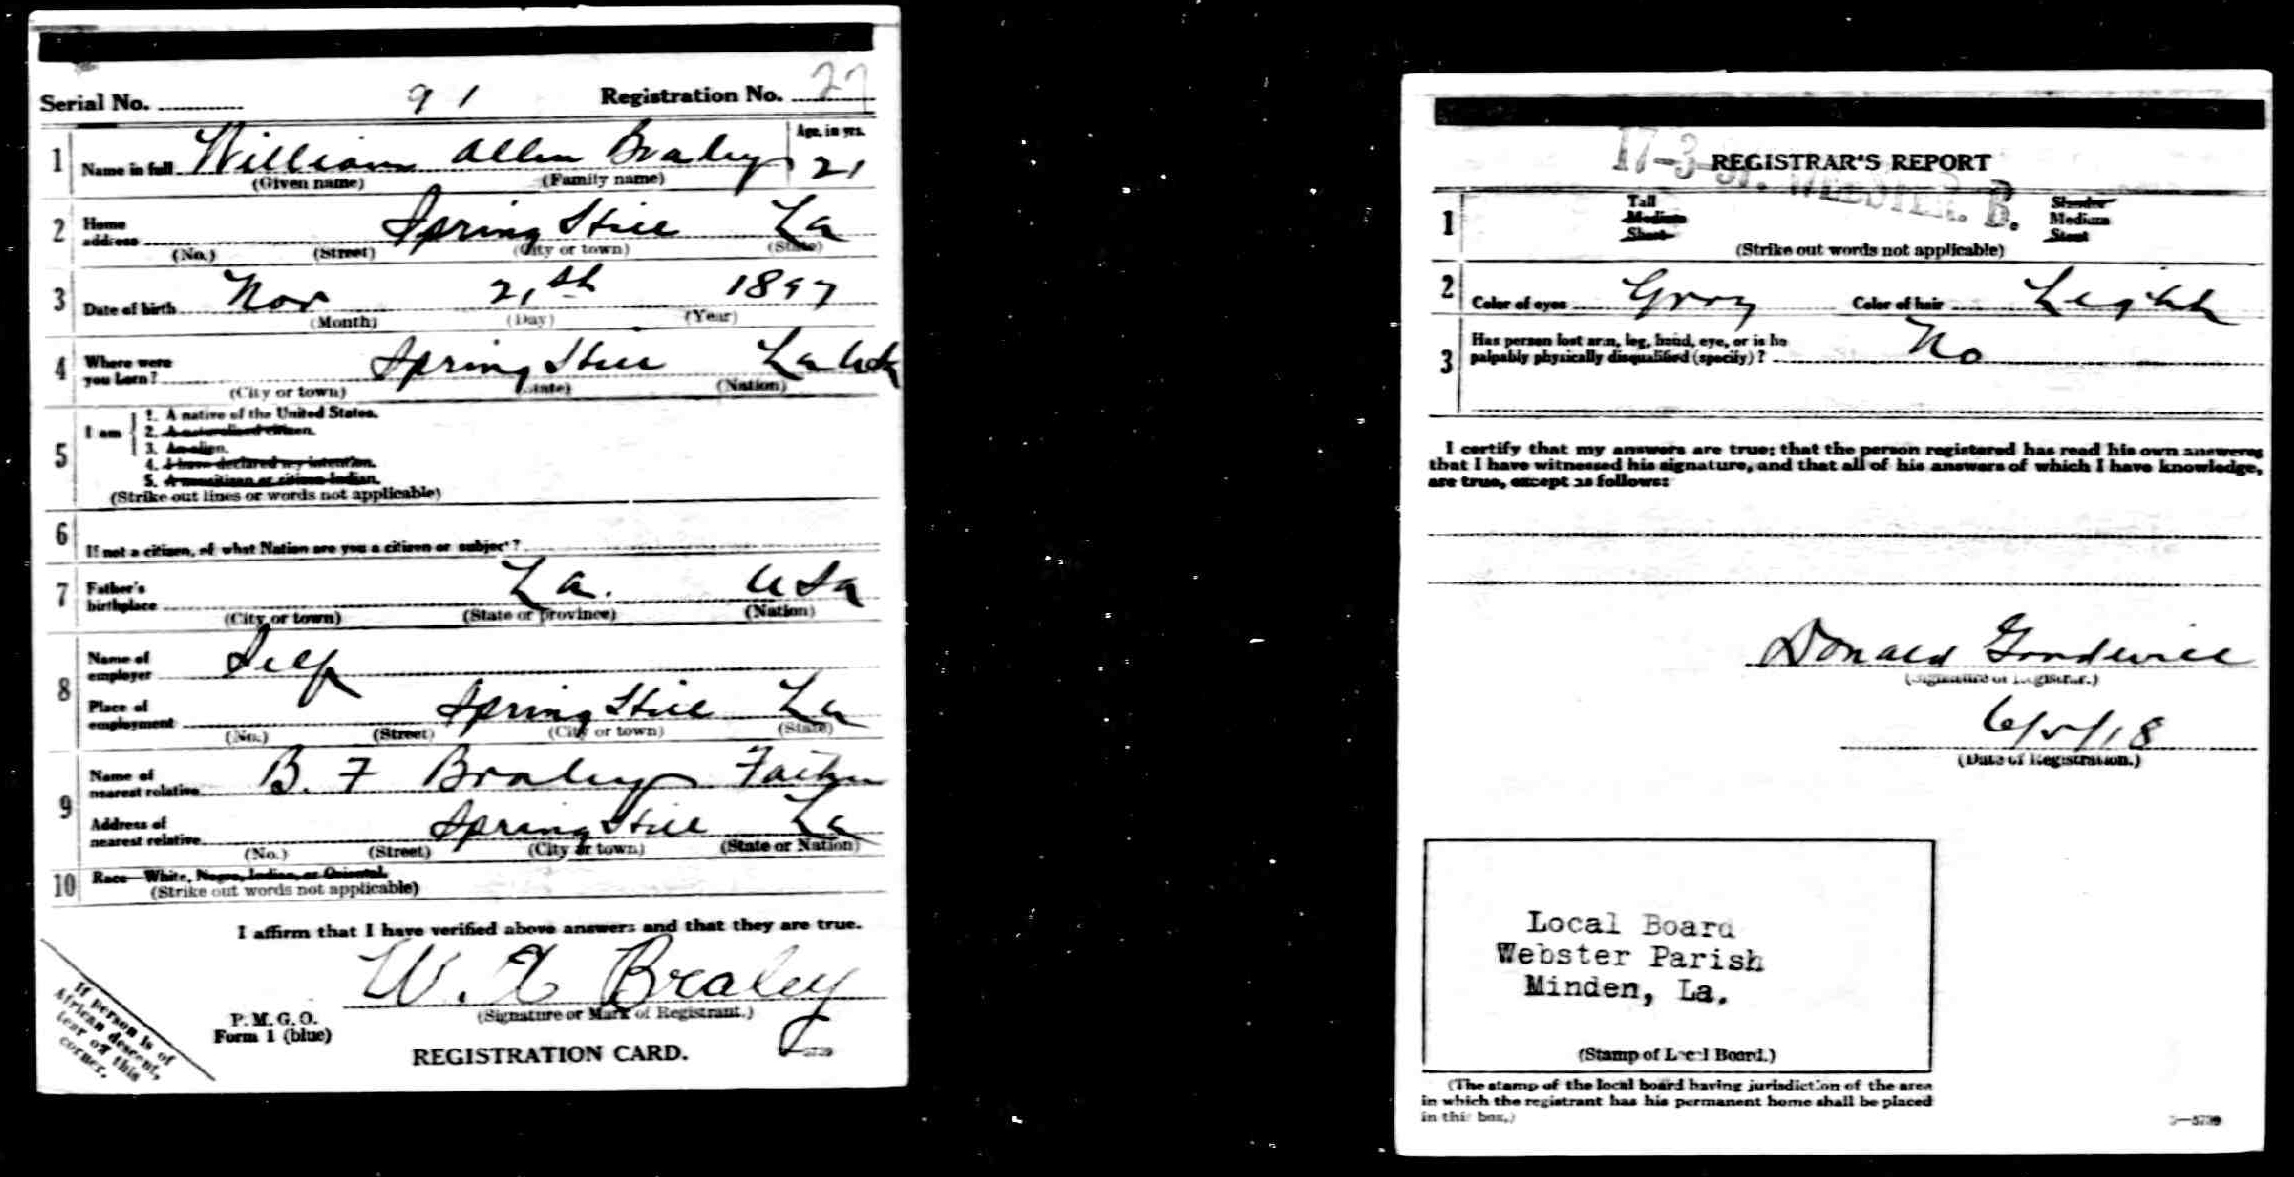 Serial No. 91 Registration No. 27
1 Name in full William Allen Braley Age, in yrs. 21
(Given name) (Family name)
2 Home address Spring Hill La
(No.) (Street) (City or town) (State)
3 Date of birth Nov 21st 1897
(Month) (Day) (Year)
4 Where were you born? Spring Hill La USA
(City or town) (State) (Nation)
5 I am
1. A native of the United States.
2. A naturalized citizen.
3. An alien.
4. I have declared my intention.
5. A noncitizen or citizen Indian.
(Strike out lines or words not applicable)
6 If not a citizen, of what Nation are you a citizen or subject?
7 Father's birthplace La. USA
(City or town) (State or province) (Nation)
8 Name of employer Self
Place of employment Spring Hill La
(No.) (Street) (City or town) (State)
9 Name of nearest relative B. F Braley Father
Address of nearest relative Spring Hill La
(No.) (Street) (City or town) (State or Nation)
10 Race—White, Negro, Indian, or Oriental.
(Strike out words not applicable)
I affirm that I have verified above answers and that they are true.
W. A Braley
(Signature or Mark of Registrant.)
P. M. G. O.
Form 1 (blue)
REGISTRATION CARD.
If person is of
African descent,
tear off this
corner.
17-3
REGISTRAR'S REPORT
WEBSTER. B.
1 Tall Slender
Medium Medium
Short Stout
(Strike out words not applicable)
2 Color of eyes Gray Color of hair Light
3 Has person lost arm, leg, hand, eye, or is he
palpably physically disqualified (specify)? No
I certify that my answers are true; that the person registered has read his own answers
that I have witnessed his signature, and that all of his answers of which I have knowledge,
are true, except as follows:
Donald Goodwill
(Signature of Registrar.)
6/5/18
(Date of Registration.)
Local Board
Webster Parish
Minden, La.
(Stamp of Local Board.)
(The stamp of the local board having jurisdiction of the area
in which the registrant has his permanent home shall be placed
in this box.)